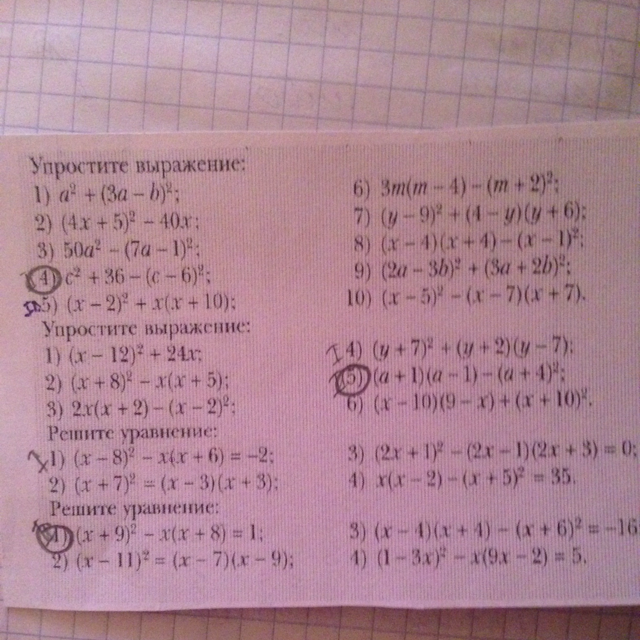 Упростите выражение:
1) a² + (3a – b)²;
2) (4x + 5)² – 40x;
3) 50a² – (7a – 1)²;
4) c² + 36 – (c – 6)²;
5) (x – 2)² + x(x + 10);
6) 3m(m – 4) – (m + 2)²;
7) (y – 9)² + (4 – y)(y + 6);
8) (x – 4)(x + 4) – (x – 1)²;
9) (2a – 3b)² + (3a + 2b)²;
10) (x – 5)² – (x – 7)(x + 7).
Упростите выражение:
1) (x – 12)² + 24x;
2) (x + 8)² – x(x + 5);
3) 2x(x + 2) – (x – 2)²;
4) (y + 7)² + (y + 2)(y – 7);
5) (a + 1)(a – 1) – (a + 4)²;
6) (x – 10)(9 – x) + (x + 10)².
Решите уравнение:
1) (x – 8)² – x(x + 6) = –2;
2) (x + 7)² = (x – 3)(x + 3);
3) (2x + 1)² – (2x – 1)(2x + 3) = 0;
4) x(x – 2) – (x + 5)² = 35.
Решите уравнение:
1) (x + 9)² – x(x + 8) = 1;
2) (x – 11)² = (x – 7)(x – 9);
3) (x – 4)(x + 4) – (x + 6)² = –16
4) (1 – 3x)² – x(9x – 2) = 5.